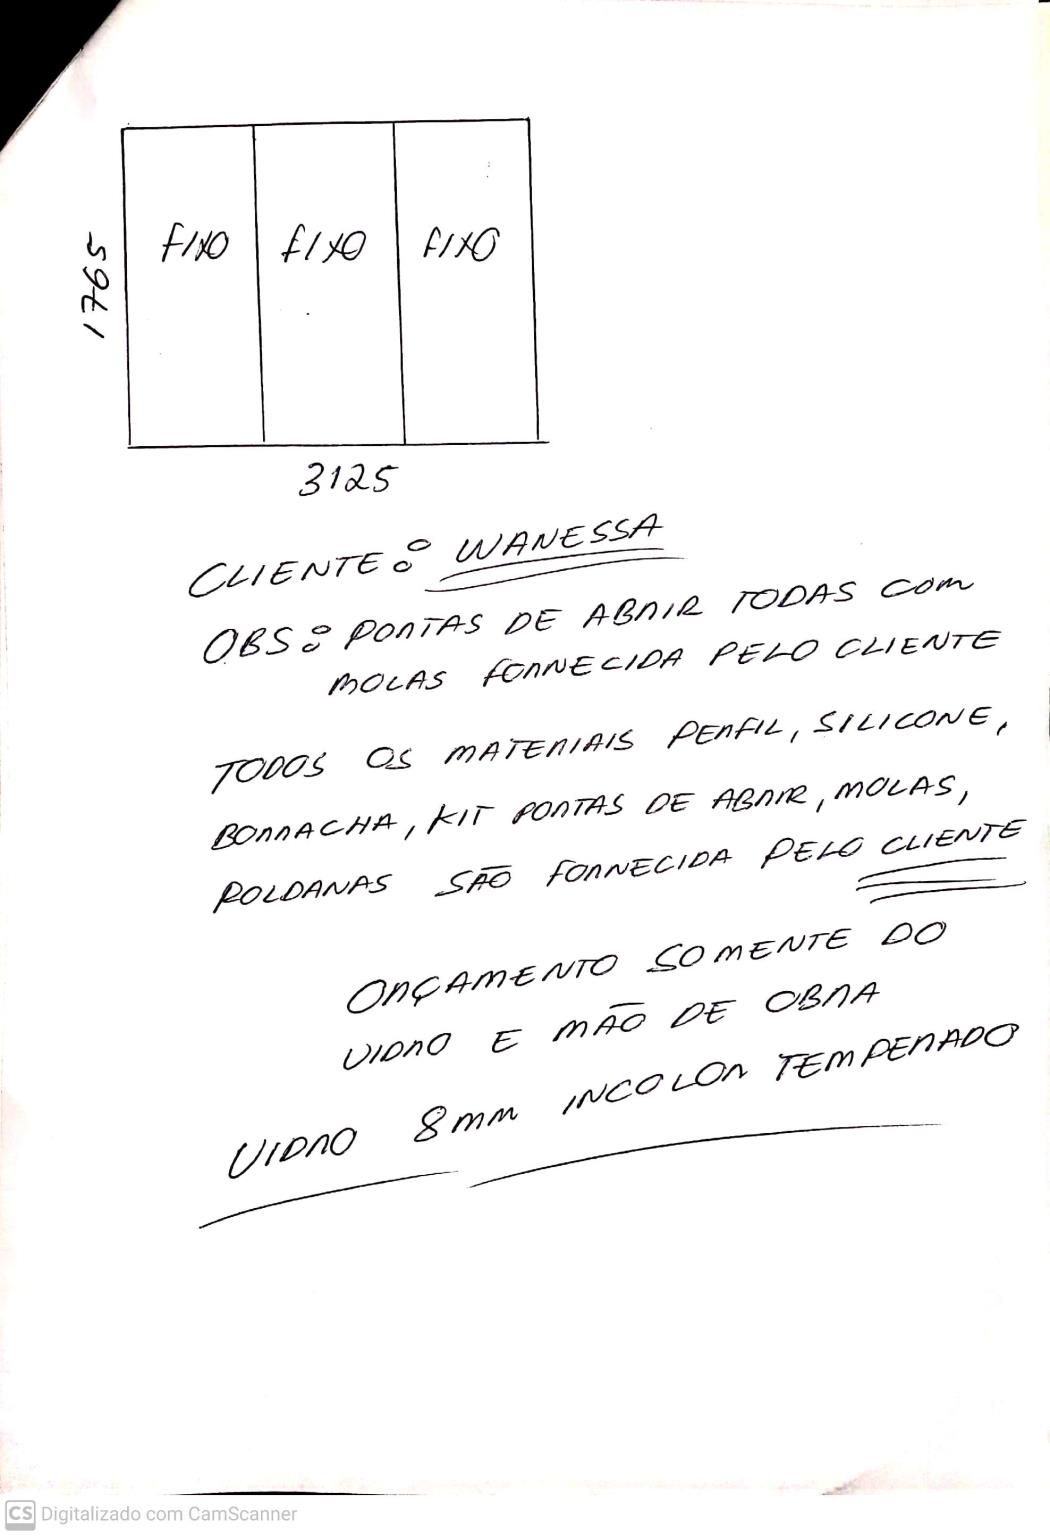 FIXO FIXO FIXO
1765
3125
CLIENTE: WANESSA
OBS: PORTAS DE ABRIR TODAS COM
MOLAS FORNECIDA PELO CLIENTE
TODOS OS MATERIAIS PERFIL, SILICONE,
BORRACHA, KIT PORTAS DE ABRIR, MOLAS,
ROLDANAS SÃO FORNECIDA PELO CLIENTE
ORÇAMENTO SOMENTE DO
VIDRO E MÃO DE OBRA
VIDRO 8mm INCOLOR TEMPERADO
CS Digitalizado com CamScanner